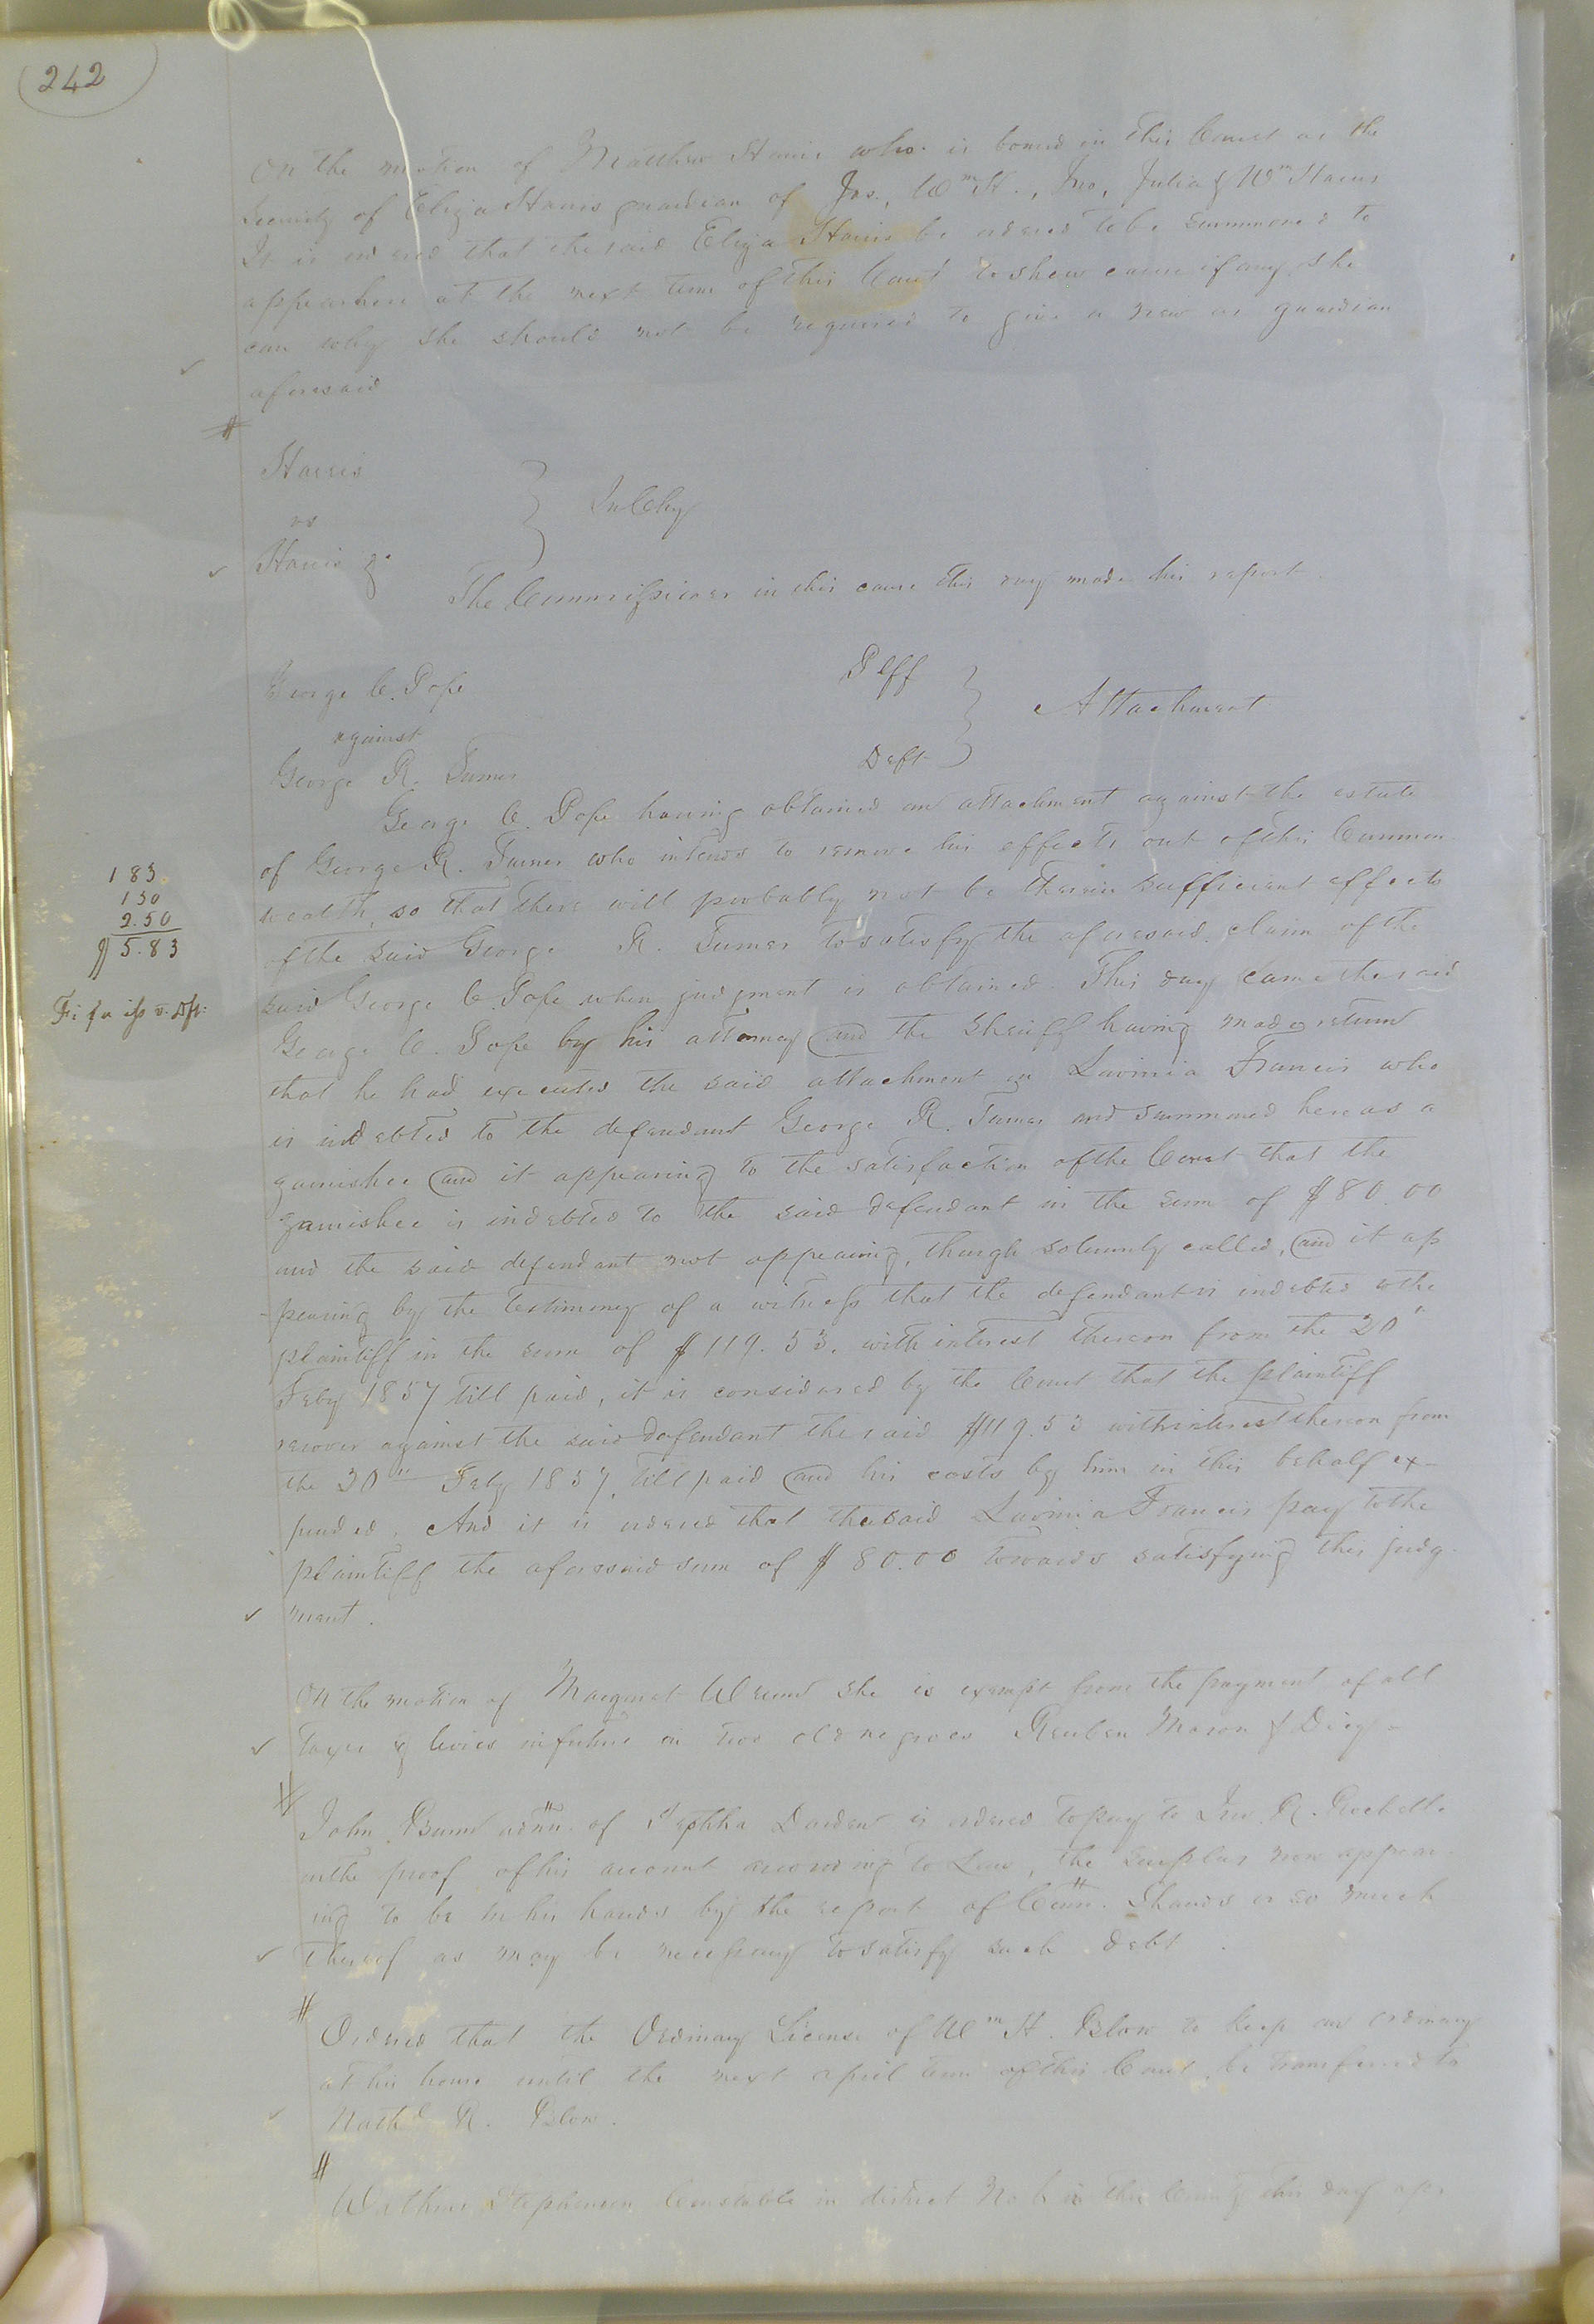 242
On the motion of Matthew Harris who is bound in this Court as the
Security of Eliza Harris guardian of Jas., Wm H., Jno, Julia & Wm Harris
It is ordered that the said Eliza Harris be ordered to be summoned to
appear here at the next term of this Court to shew cause if any she
can why she should not be required to give a new as guardian
aforesaid
Harris
vs
Harris &c
In Chy
The Commissioner in this cause this day made his report.
George C. Pope Plff
against
George R. Turner Deft
Attachment
George C. Pope having obtained an attachment against the estate
of George R. Turner who intends to remove his effects out of this Common-
wealth, so that there will probably not be therein sufficient effects
of the said George R. Turner to satisfy the aforesaid claim of the
said George C. Pope when judgment is obtained. This day came the said
George C. Pope by his attorney and the Sheriff having made return
that he had executed the said attachment on Lavinia Francis who
is indebted to the defendant George R. Turner and summoned here as a
garnishee and it appearing to the satisfaction of the Court that the
garnishee is indebted to the said defendant in the sum of $80.00
and the said defendant not appearing, though solemnly called, and it ap
-pearing by the testimony of a witness that the defendant is indebted to the
plaintiff in the sum of $119.53. with interest thereon from the 20"
Feby 1857 till paid, it is considered by the Court that the plaintiff
recover against the said defendant the said $119.53 with interest thereon from
the 20" Feby 1857, till paid and his costs by him in this behalf ex-
pended. And it is ordered that the said Lavinia Francis pay to the
plaintiff the aforesaid sum of $80.00 towards satisfying this judg-
ment.
183
150
2.50
$5.83
Fi fa iss v. Dft.
On the motion of Margaret she is exempt from the payment of all
taxes & levies in future on two old negroes Reuben Mason & Dicy-
John admr. of Jephtha Darden is ordered to pay to Jno. R.
on the proof of his account according to Law, the surplus now appear-
ing to be in his hands by the report of Comr. Shands or so much
thereof as may be necessary to satisfy such debt.
Ordered that the Ordinary License of Wm H. Blow to keep an ordinary
at his house until the next april term of this Court be transferred to
Nathl R. Blow.
Stephenson Constable in district No 6 in this County this day ap-